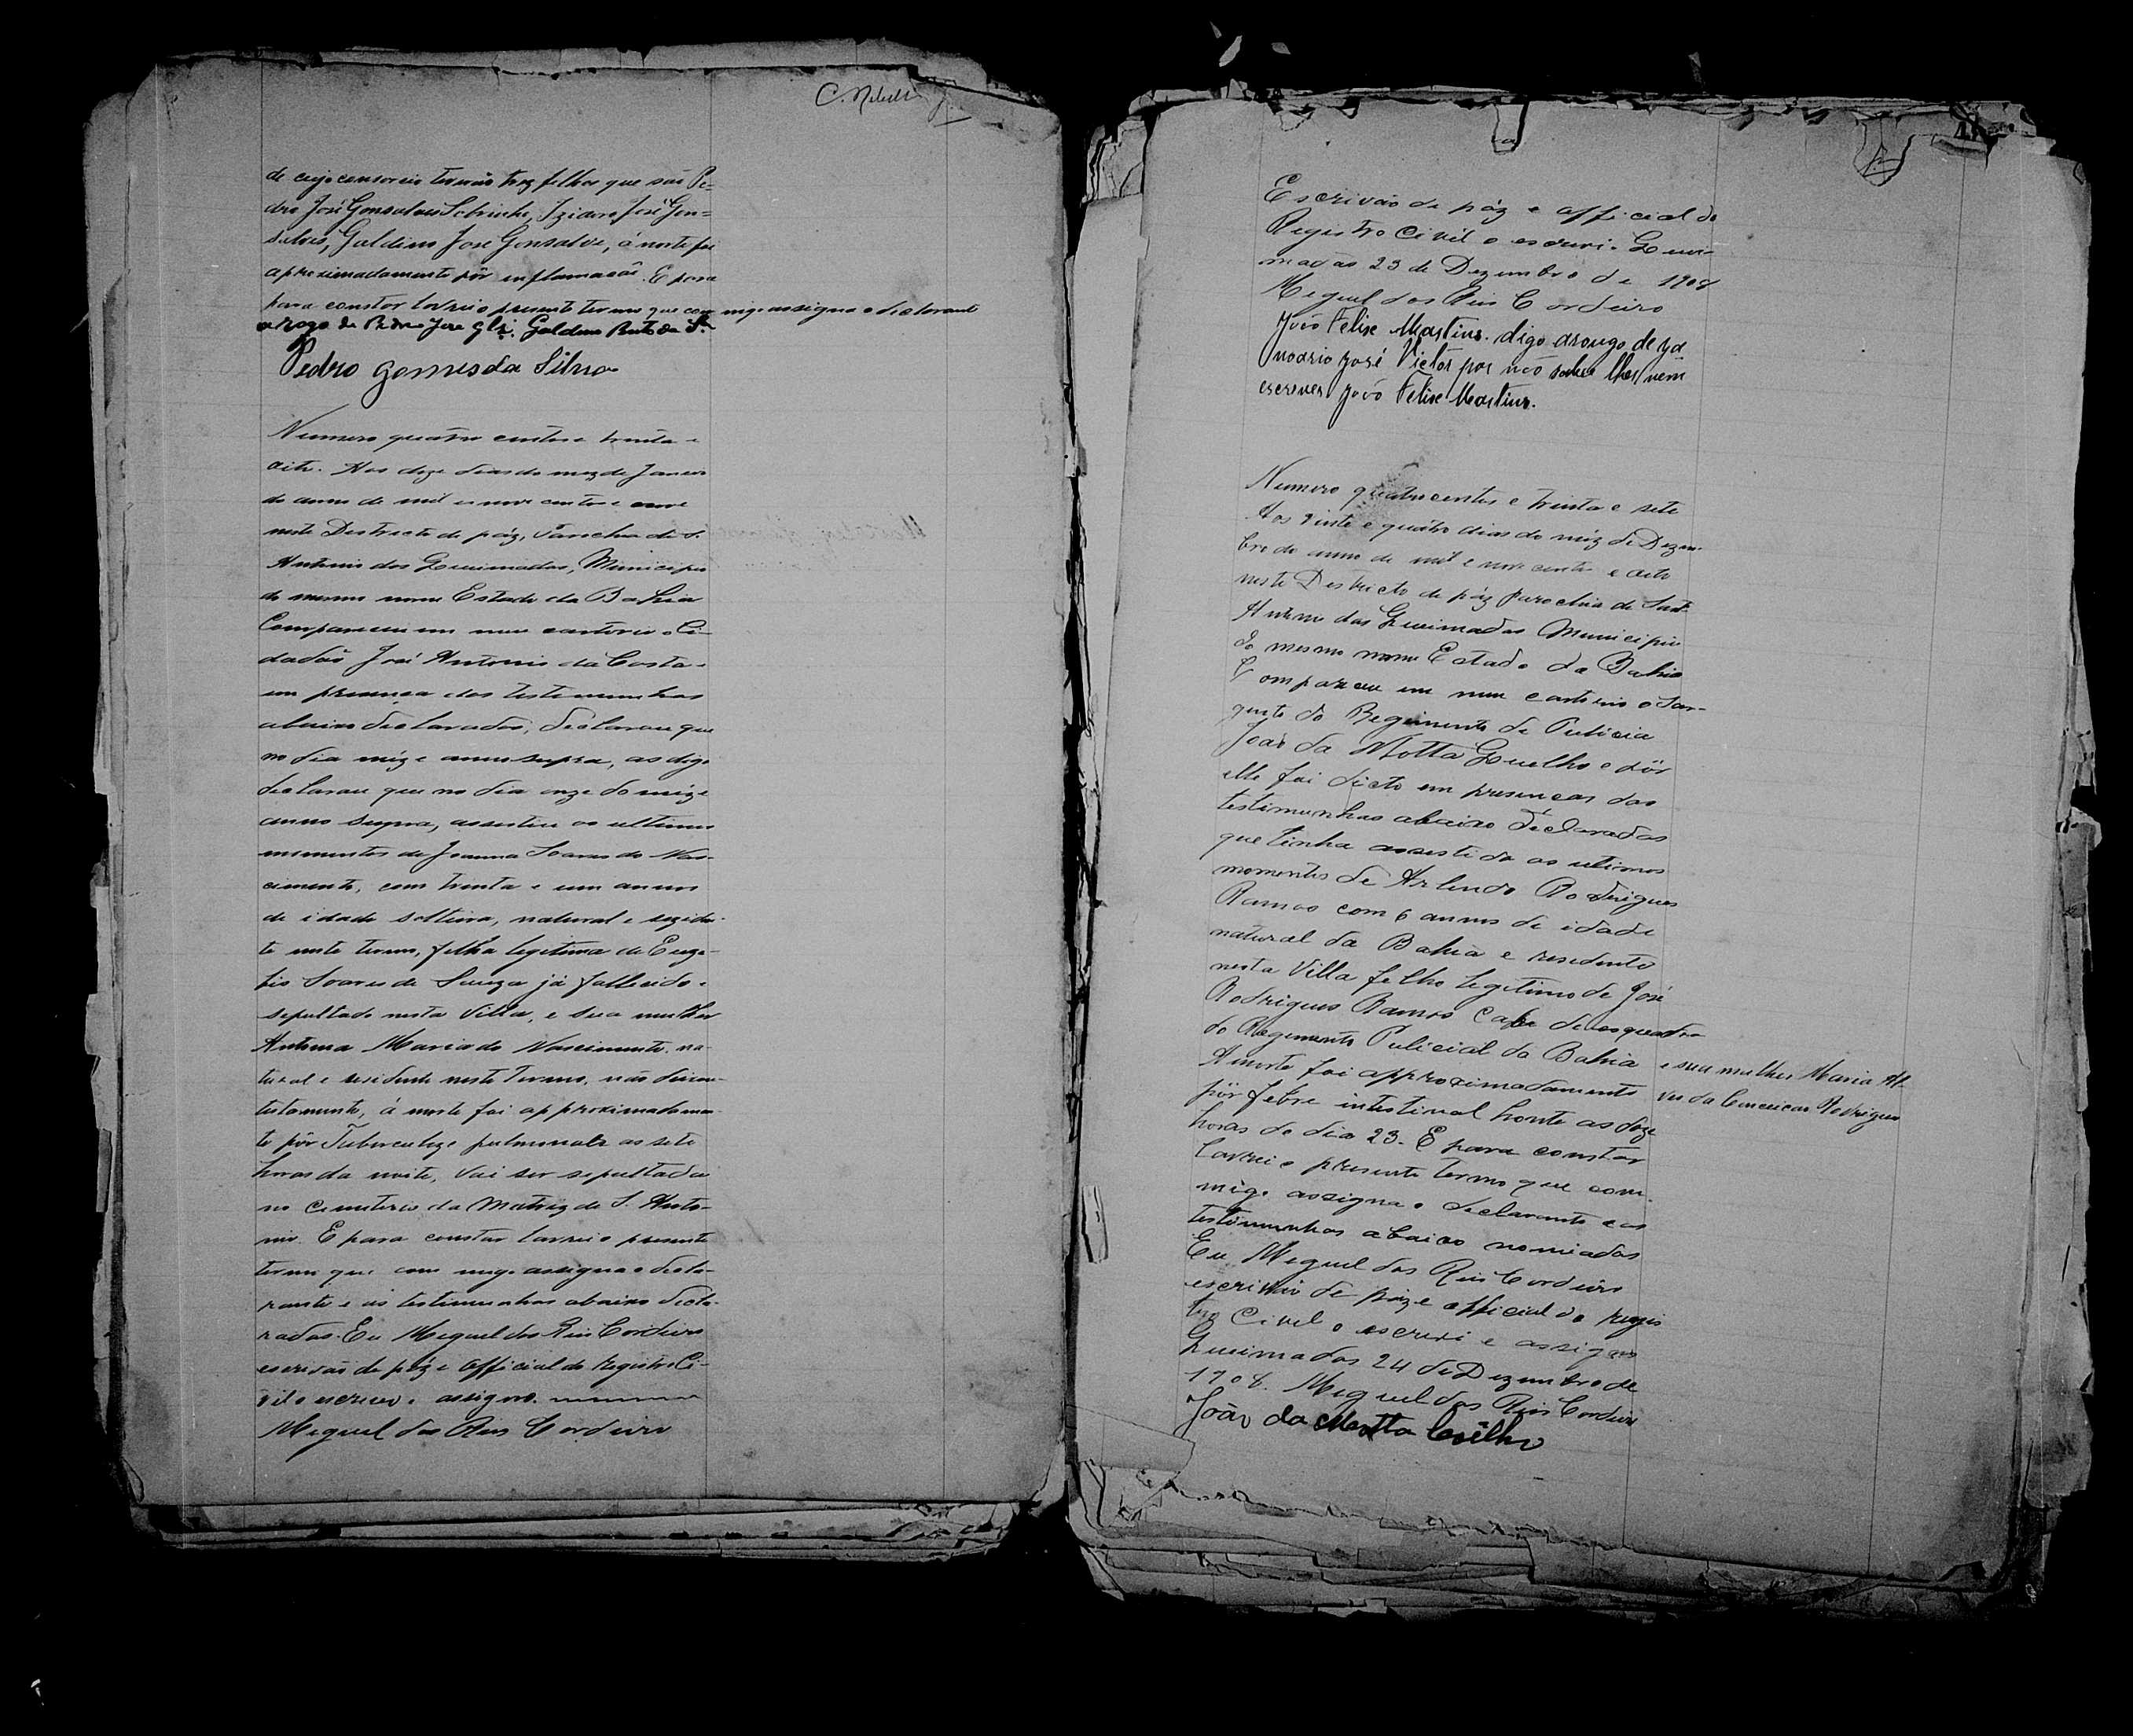 de cujo consorcio tiverão trez filhos que são Pe-
dro José Gonsalves Sobrinho, Izidoro José Gon-
salves, Galdino José Gonsalves, á morte foi
aproximadamente pôr inflamacão. E para
para constar lavrei o presente termo que com migo assigna o declarante
a rogo de Pedro Jose Glz. Galdino Pinto da Sa
Pedro Gomes da Silva
Numero quatro centos e trinta e
oito. Aos doze dias do mez de Janeiro
do anno de mil e nove centos e nove
neste Destricto de páz, Parochia de S.
Antonio das Queimadas, Municipio
do mesmo nome Estado da Bahia
Compareceu em meu cartorio o Ci-
dadão José Antonio da Costa e
em presença das testemunhas
abaixo declaradas, declarou que
no dia mêz e anno supra, as digo
declarou que no dia onze do mêz e
anno supra, assistiu os ultimos
momentos de Joanna Soares do Nas-
cimento, com trinta e um annos
de idade solteira, natural e rezide-
te neste termo, filha legitima de
Soares de Souza já fallecido e
sepultado nesta Villa, e sua mulher
Antonia Maria do Nascimento, na-
tural e residente neste Termo, não deixou
testamento, á morte foi approximadamen-
te pôr Tuberculoze pulmunale as sete
horas da noite, vai ser sepultada
no Cemiterio da Matriz de S. Anto-
nio. E para constar lavrei o presente
termo que com migo assigna o decla-
rante e as testemunhas abaixo decla-
radas. Eu Miguel dos Reis Cordeiro
escrivão de páz e official do registro Ci-
vil o escrevi e assigno.
Miguel dos Reis Cordeiro
Escrivão de páz e official do
Registro Civil o escrevi. Quei-
madas 23 de Dezembro de 1908
Miguel dos Reis Cordeiro
João Felise Martins. digo arougo de ja
noario José Victor por não saber lher nem
escrever João Felise Martins.
Numero quatrocentos e trinta e sete
Aos vinte e quatro dias do mêz de Dezem-
bro do anno de mil e nove centos e oito
neste Destricto de páz Parochia de Santo
Antonio das Queimadas Municipio
do mesmo nome Estado da Bahia
Compareceu em meu cartorio o Sar-
gento do Regimento de Policia
João da Motta Quelho e pôr
elle foi dicto em presenças das
testimunhas abaixo declaradas
que tinha assestido os ultimos
momentos de Arlindo Rodrigues
Ramos com 6 annos de idade
natural da Bahia e residente
nesta Villa filho legitimo de José
Rodrigues Ramos Cabo de esquadra
do Regimento Policial da Bahia e sua mulher Maria Al-
A morte foi approximadamente ves da Conceicão Rodrigues
pôr febre intestinal honte as doze
horas do dia 23. E para constar
lavrei o presente termo que com-
migo assigna o declarante e as
testimunhas abaixo nomiadas
Eu Miguel dos Reis Cordeiro
escrivão de páz e official do regis
tro Civel o escrevi e assigno
Queimadas 24 de Dezembro de
1908. Miguel dos Reis Cordeiro
João da Motta Coêlho